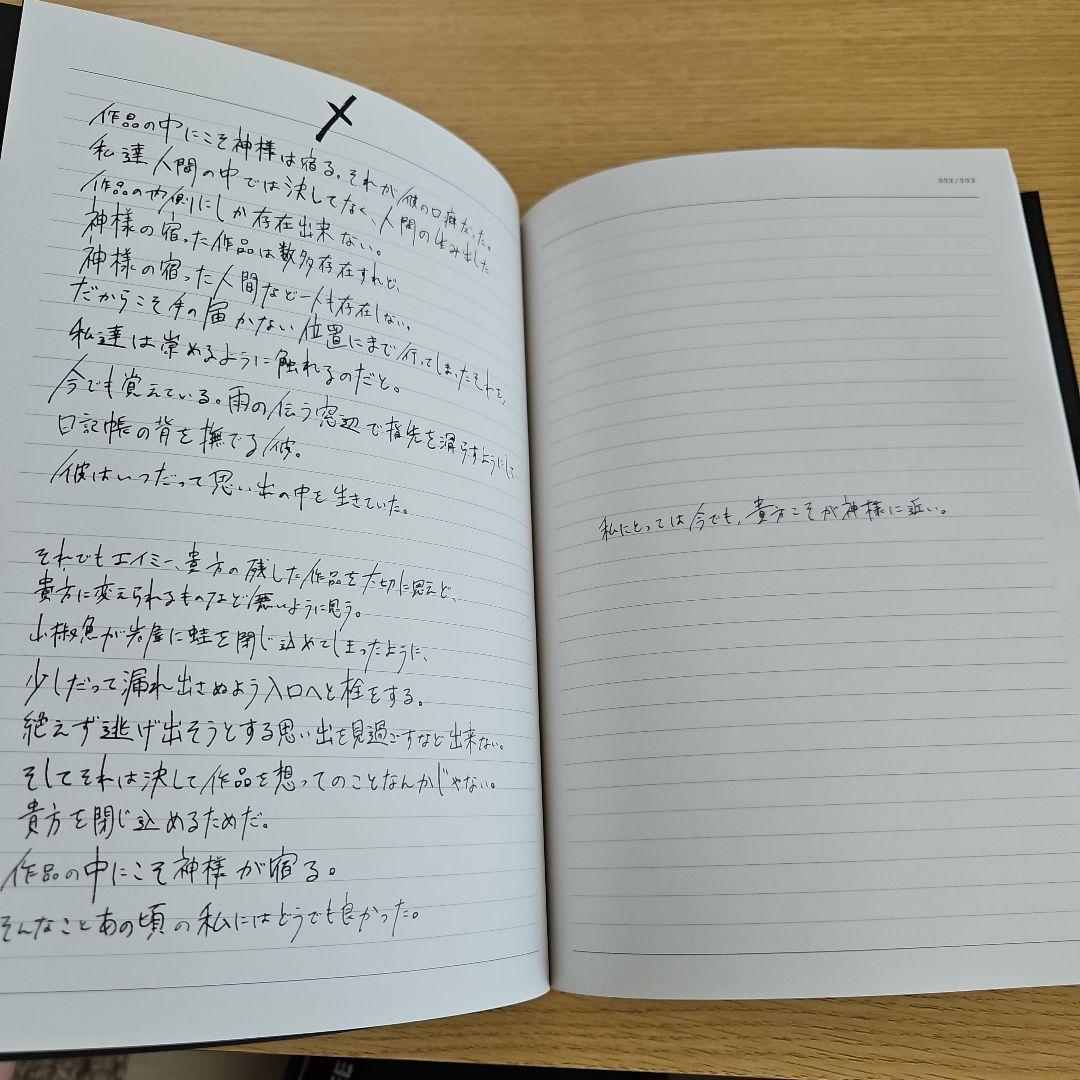 作品の中にこそ神様は宿る。それが彼の口癖だった。
私達人間の中では決してなく、人間の生み出した
作品の内側にしか存在出来ない。
神様の宿った作品は数多存在すれど、
神様の宿った人間など一人も存在しない。
だからこそ手の届かない位置にまで行ってしまったそれを、
私達は崇めるように触れるのだと。
今でも覚えている。雨の伝う窓辺で指先を滑らすようにして
日記帳の背を撫でる彼。
彼はいつだって思い出の中を生きていた。
それでもエイミー、貴方の残した作品を大切に思えど、
貴方に変えられるものなど無いように思う。
山椒魚が岩屋に蛙を閉じ込めてしまったように、
少しだって漏れ出さぬよう入口へと栓をする。
絶えず逃げ出そうとする思い出を見過ごすなど出来ない。
そしてそれは決して作品を想ってのことなんかじゃない。
貴方を閉じ込めるためだ。
作品の中にこそ神様が宿る。
そんなことあの頃の私にはどうでも良かった。
私にとっては今でも、貴方こそが神様に近い。